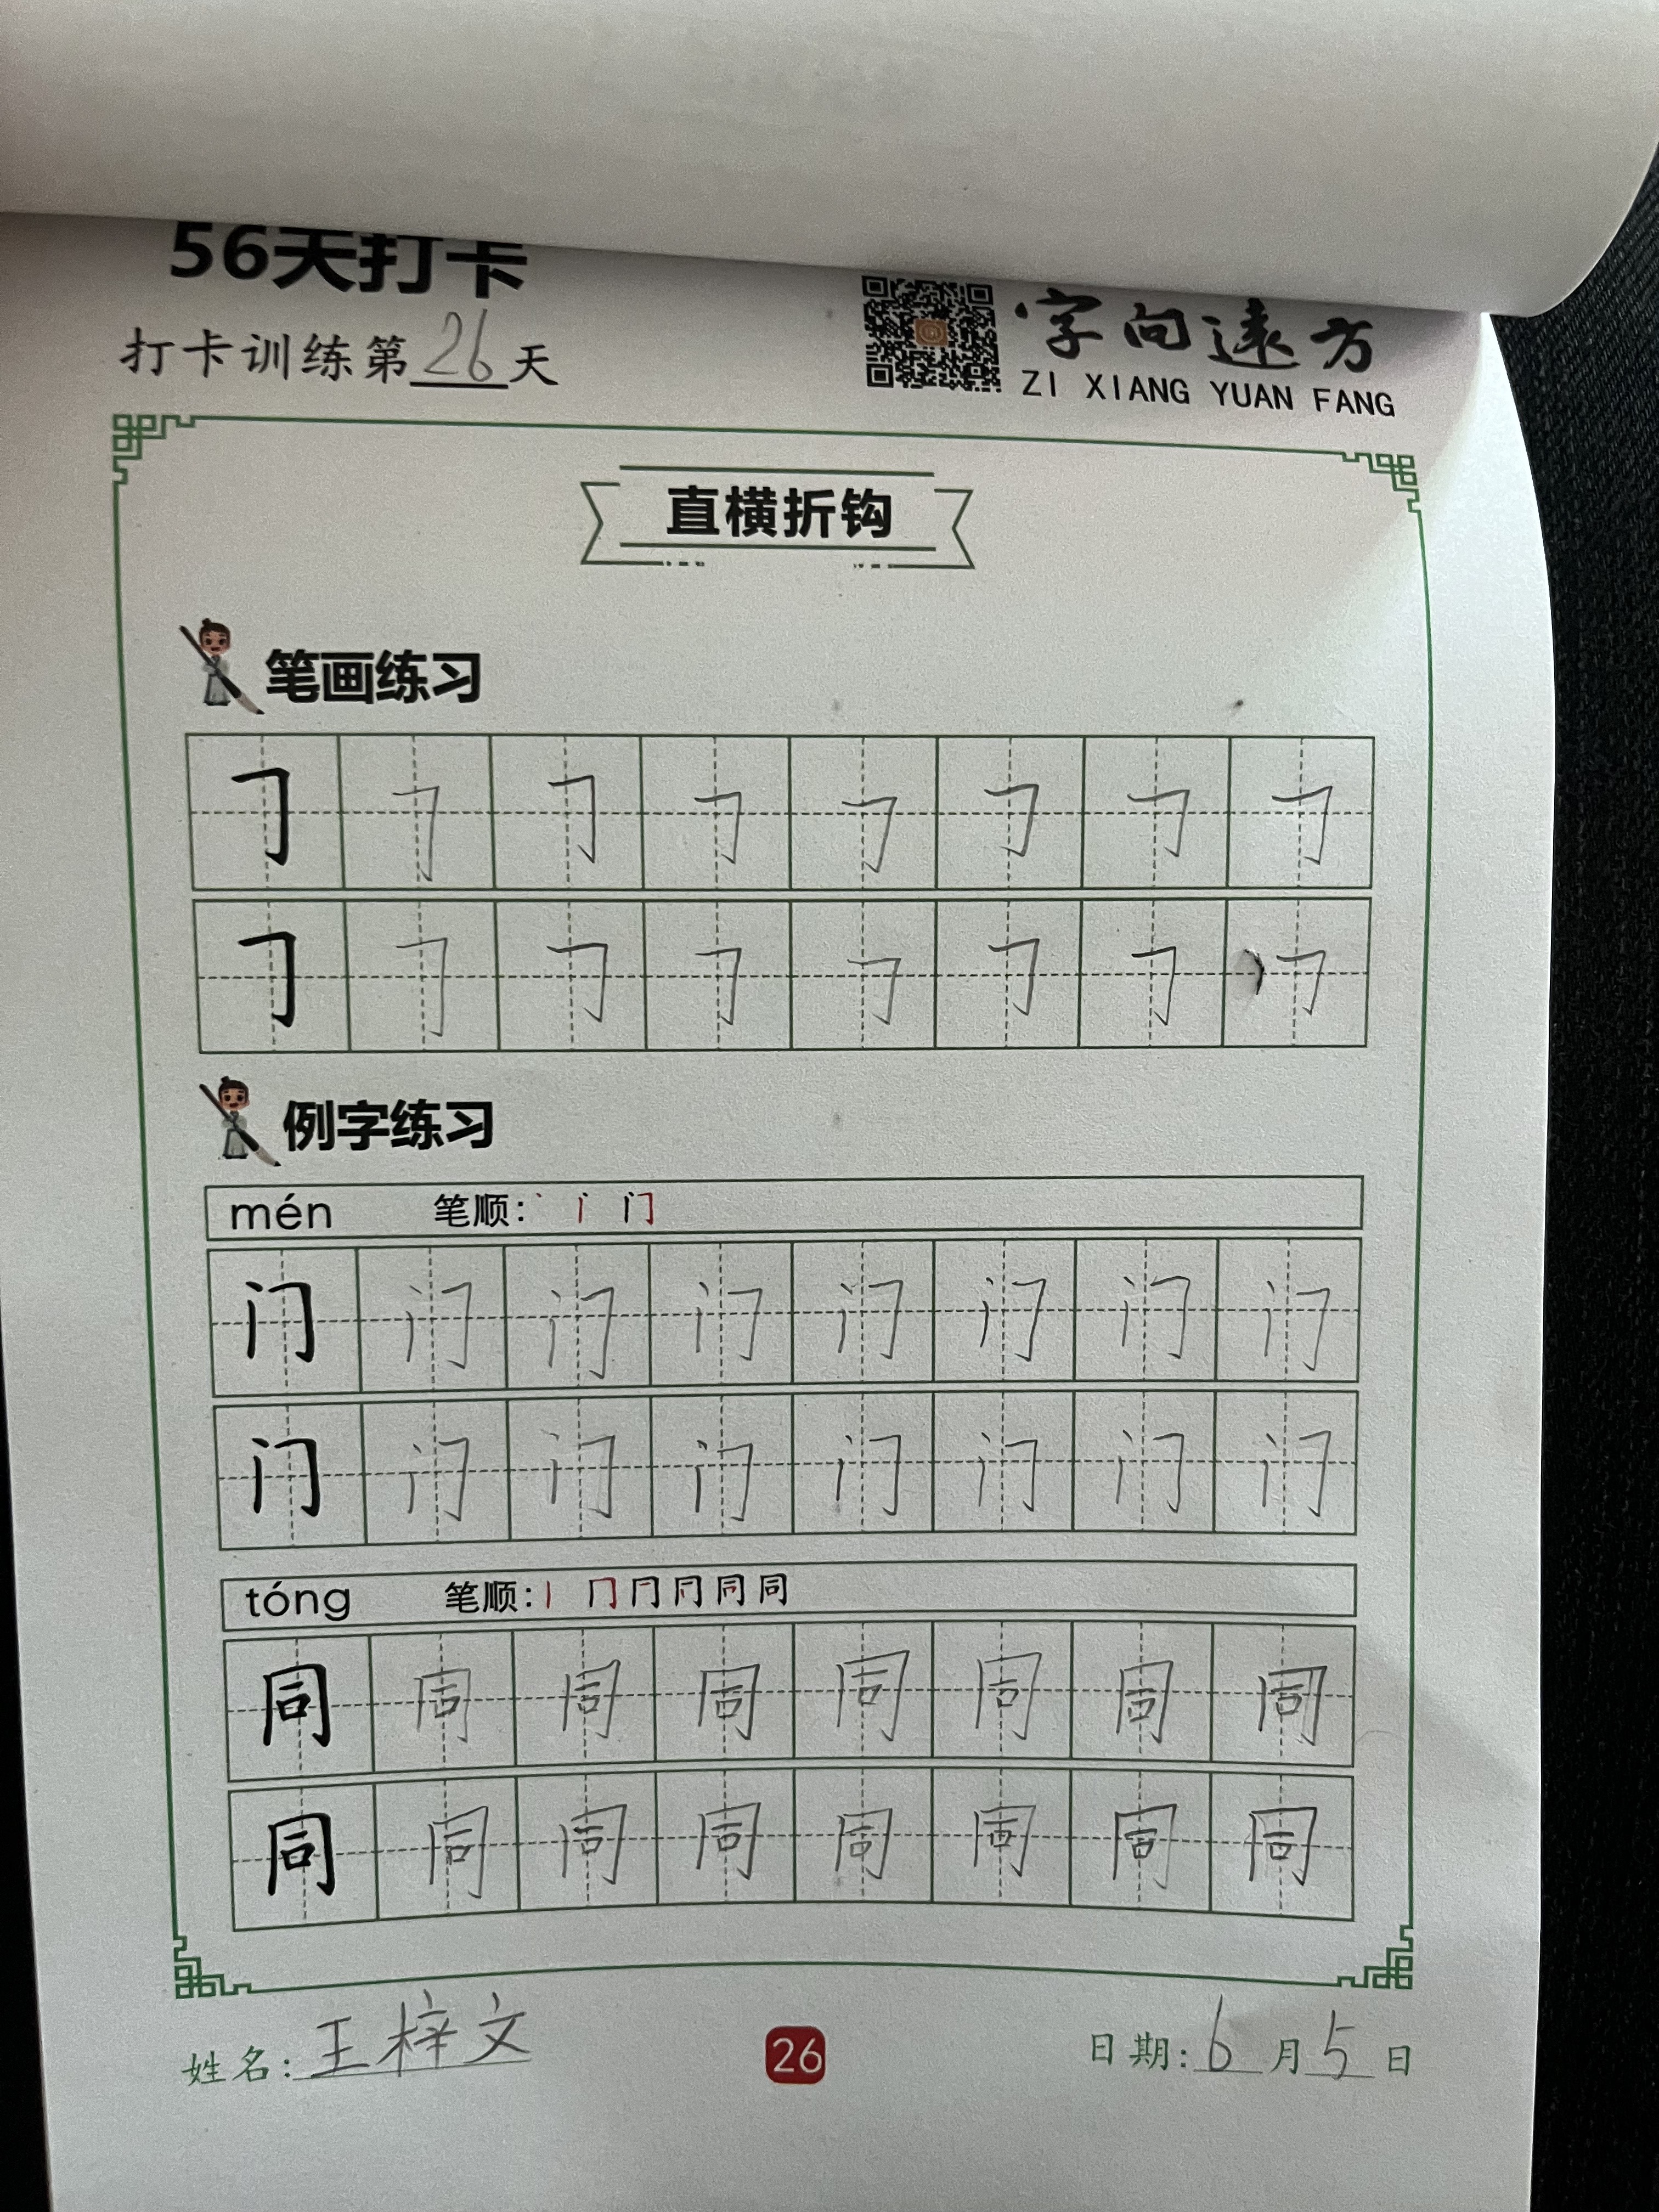 56天打卡
打卡训练第26天
字向远方
ZI XIANG YUAN FANG
直横折钩
笔画练习
𠃌 𠃌 𠃌 𠃌 𠃌 𠃌 𠃌 𠃌
𠃌 𠃌 𠃌 𠃌 𠃌 𠃌 𠃌 𠃌
例字练习
mén 笔顺: 丶 门
门 门 门 门 门 门 门 门
门 门 门 门 门 门 门 门
tóng 笔顺: 丨 冂 同 同
同 同 同 同 同 同 同 同
同 同 同 同 同 同 同 同
姓名: 王梓文
26
日期: 6月5日